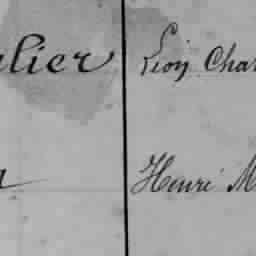 lier Léon Char
Henri M